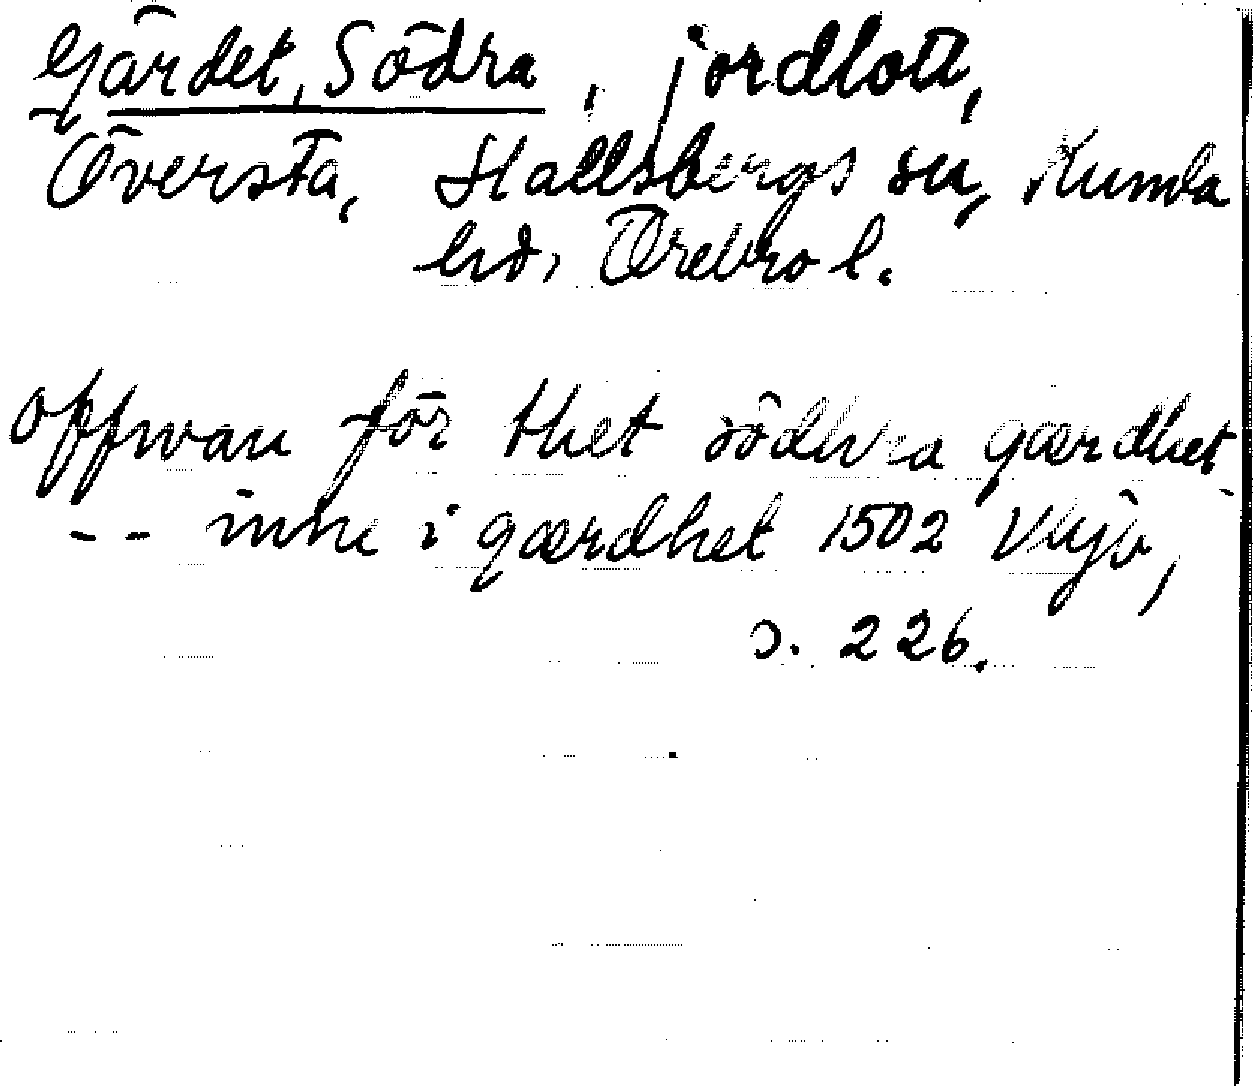 Gärdet, Södra, jordlott,
Översta, Hallsbergs sn, Kumla
hd, Örebro l.
offwan för thet södhra gærdhet
-- inne i gærdhet 1502 Vkjb,
s. 226.